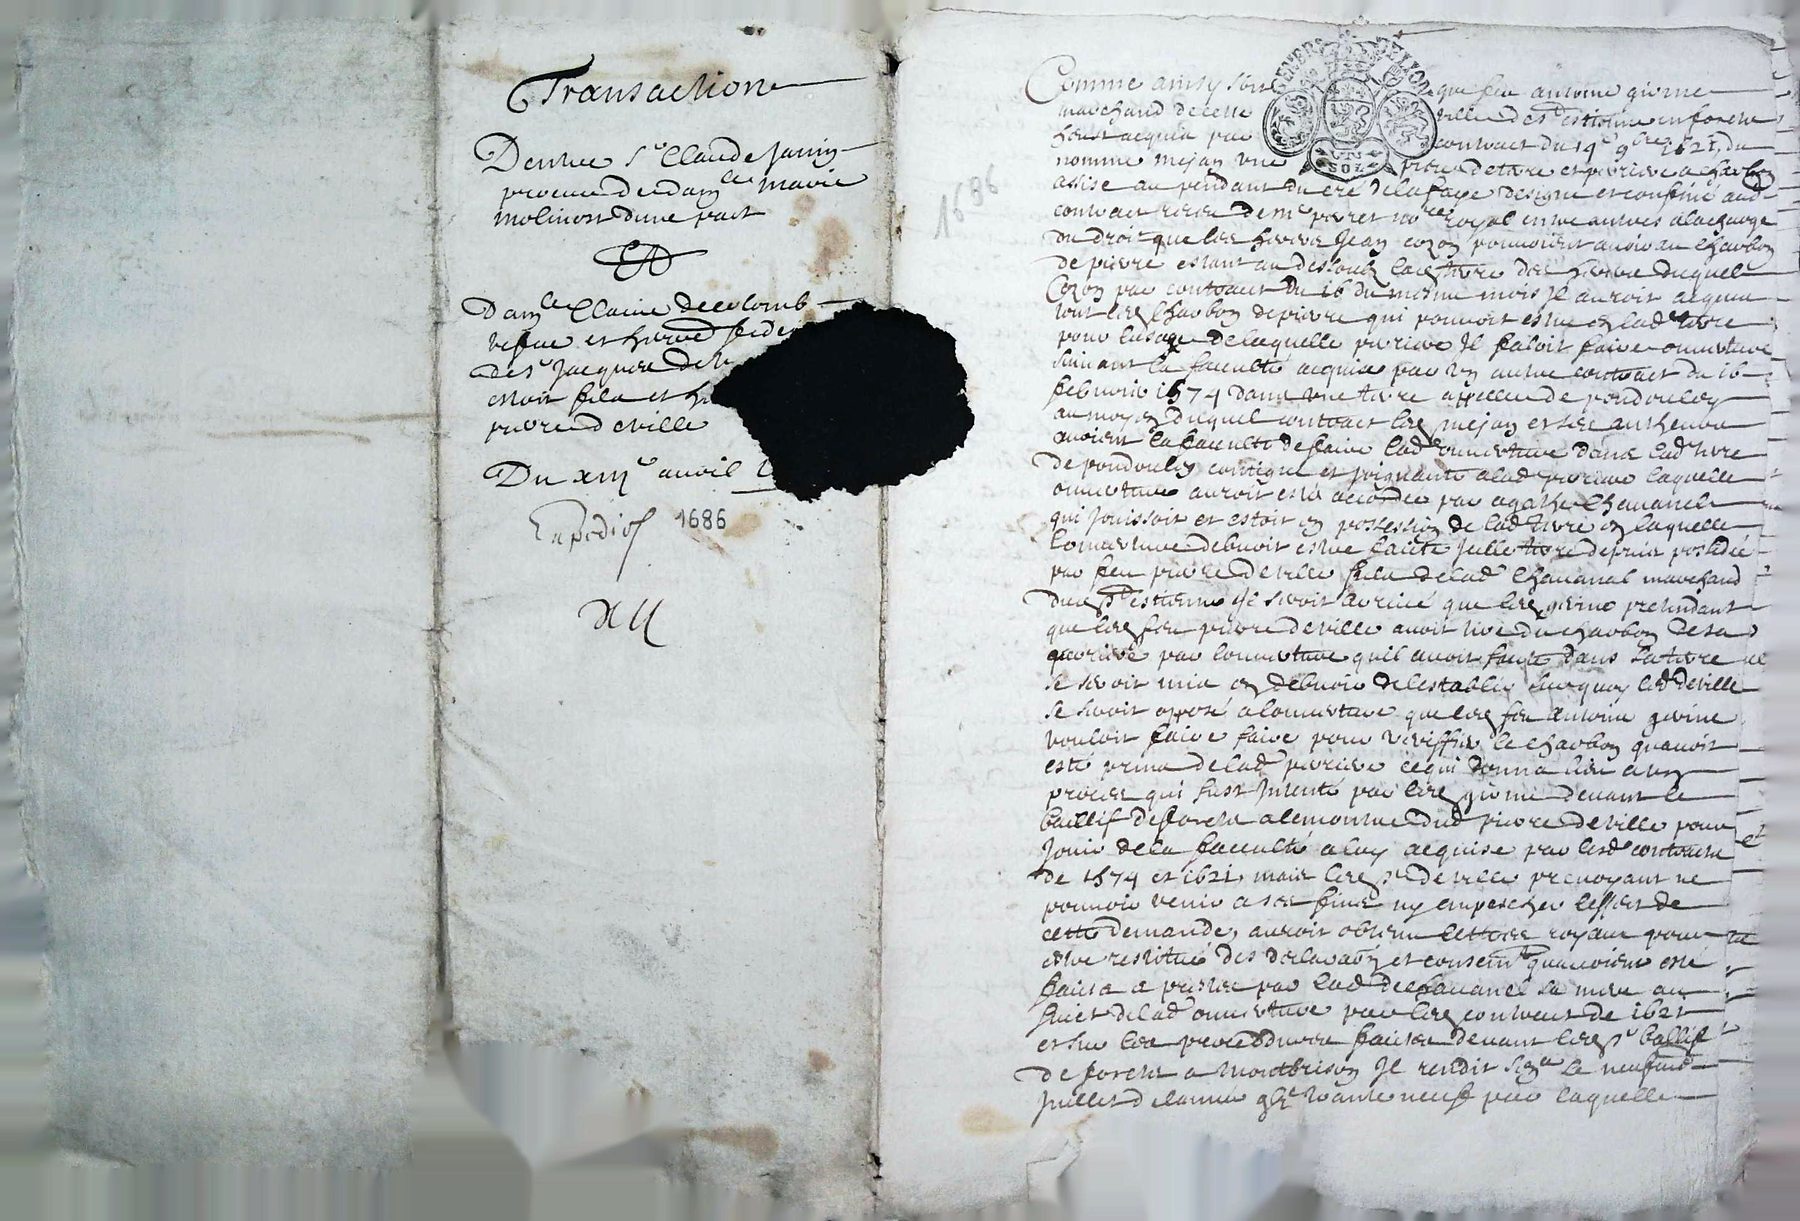 Transaction
Dentre Sr Claude Janin
procureur de damlle marie
molinost dune part
Et
Damlle Claire decolomb
vefve et
de Sr Jacques de
estoit fils et
pierre deville
Du xiiie avril
Expedié
1686
GENER DE LYON
SOLZ
1686
Comme ainsy soit que feu antoine girine
marchand de cette ville de St estienne en forestz
heust acquis par contract du 14e 9bre 1621, du
nomme mejan une terre et perriere a charbon
assise au pendant du cré de la faye designé et confiné aud
contract receu de me notre royal entre autres a la charge
du droit que les Jean cozon pouvoient avoir au charbon
de pierre estant au dessoubz lad terre des duquel
Cozon par contract du 16 du mesme mois Il auroit acquis
tout led charbon de pierre qui pouvoit estre en lad terre
pour lusage de laquelle perriere Il faloit faire ouverture
suivant la faculté acquise par un autre contract du 16
febvrier 1574 dans une terre appellee de
au moyen duquel contract led mejan et ses autheurs
avoient la faculté de faire lad ouverture dans lad terre
de contigue et joignante a lad perriere laquelle
ouverture auroit esté accordée par agathe Chavanel
qui Jouissoit et estoit en possession de lad terre en laquelle
louverture debvoit estre faicte Jcelle terre depuis possedée
par feu pierre deville fils de lad Chavanel marchand
dud St estienne seroit arrivé que led girine pretendant
que led feu pierre deville avoit tiré du charbon de sa
perriere par louverture quil avoit faicte dans sa terre
se seroit mis en debvoir de lestablir surquoy led deville
se seroit opposé a louverture que led feu antoine girine
vouloit faire faire pour veriffier le charbon quavoit
esté prins de lad perriere ce qui donna lieu a un
procez qui fust Intenté par led girine devant le
baillif de forestz a lencontre dud pierre deville pour
Jouir de la faculté a luy acquise par lesd contractz
de 1574 et 1621, mais led Sr deville prevoyant ne
pouvoir venir a ses fins ny empescher leffect de
cette demande, auroit obtenu lettres royaux pour
estre restitué des declaraons et consentemt quavoient esté
faits a passer par lad de chavanel sa mere au
suiet de lad ouverture par led contract de 1621
et sur les procedures faites devant led Sr ballif
de forestz a montbrison Il rendit le neufvie
Juillet de lannée trante neuf par laquelle